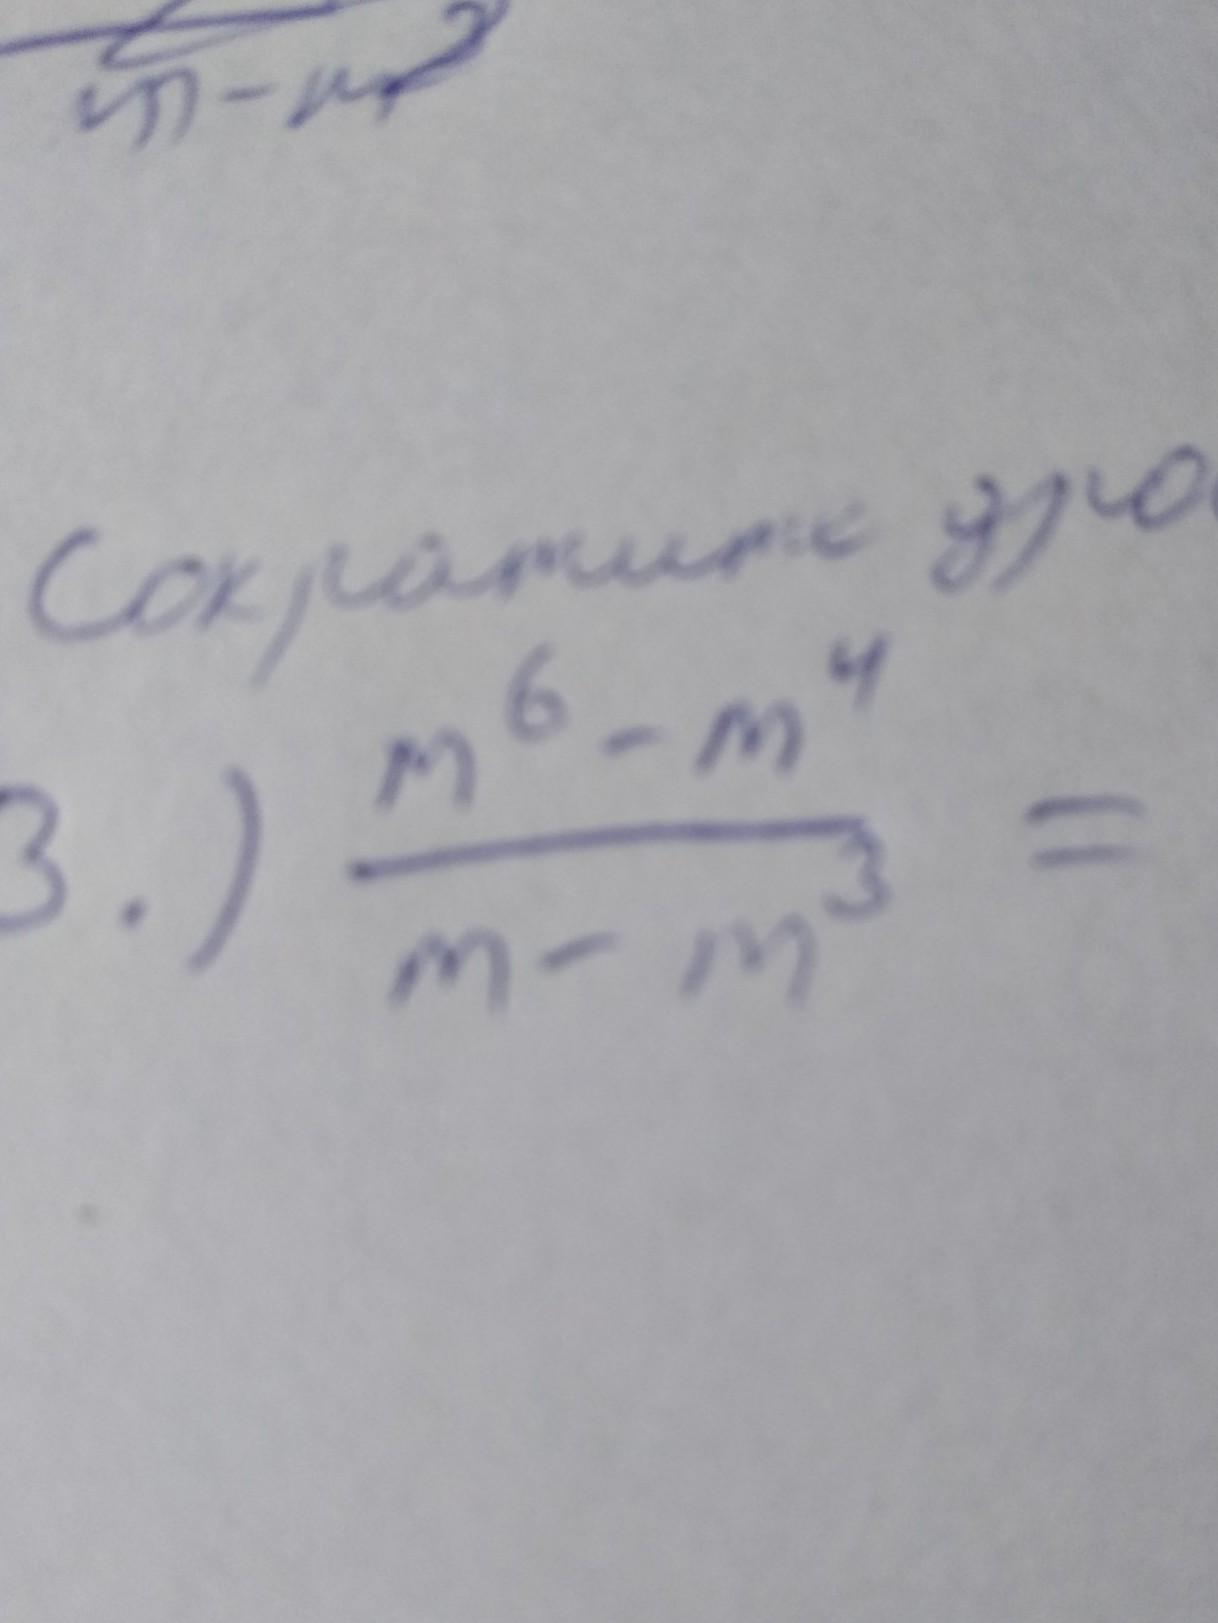 Сократите
3.) m⁶ - m⁴ =
m - m³